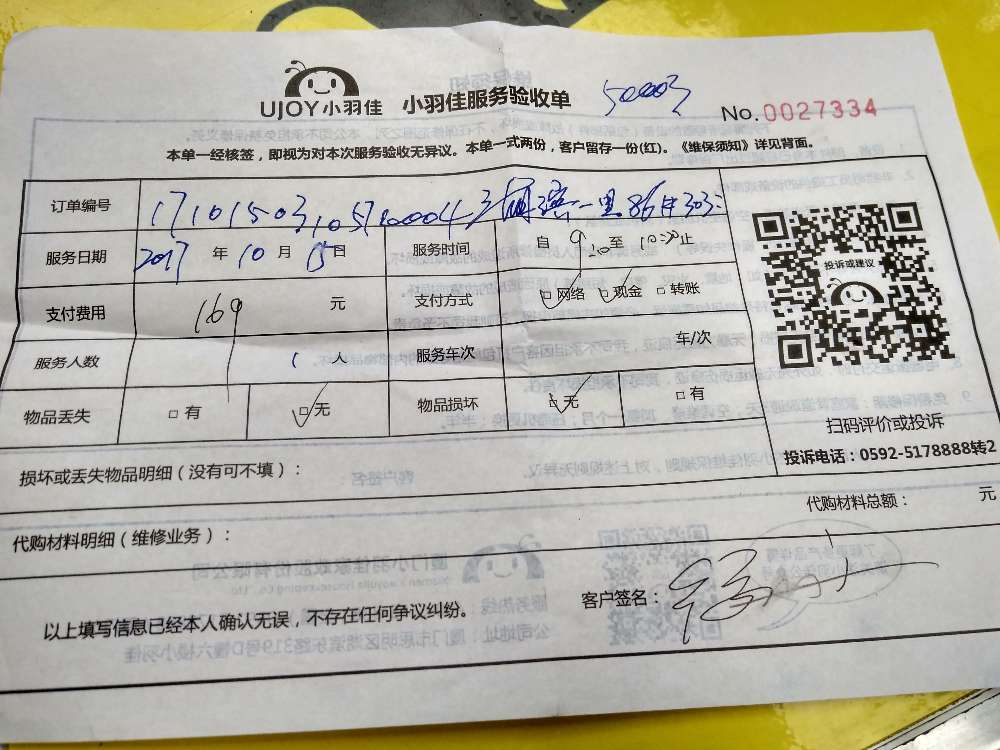 UJOY小羽佳 小羽佳服务验收单 50003
No.0027334
本单一经核签，即视为对本次服务验收无异议。本单一式两份，客户留存一份(红)。《维保须知》详见背面。
订单编号
服务日期 2017 年 10 月 15 日 服务时间 自 9:20 至 10:20 止
支付费用 169 元 支付方式 □网络 □现金 □转账
服务人数 1 人 服务车次 车/次
物品丢失 □有 □无 物品损坏 □无 □有
投诉或建议
扫码评价或投诉
投诉电话：0592-5178888转2
损坏或丢失物品明细（没有可不填）：
代购材料明细（维修业务）： 代购材料总额： 元
以上填写信息已经本人确认无误，不存在任何争议纠纷。 客户签名：